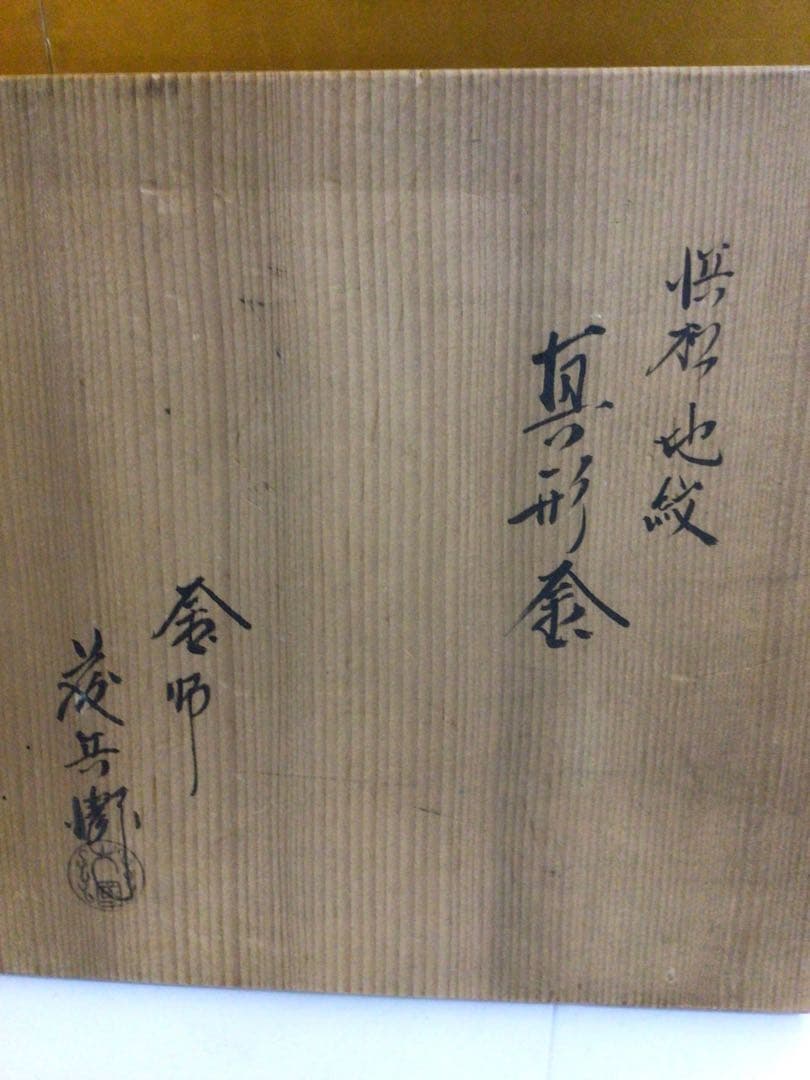 浜松地紋
真形釜
釜師
茂兵衛